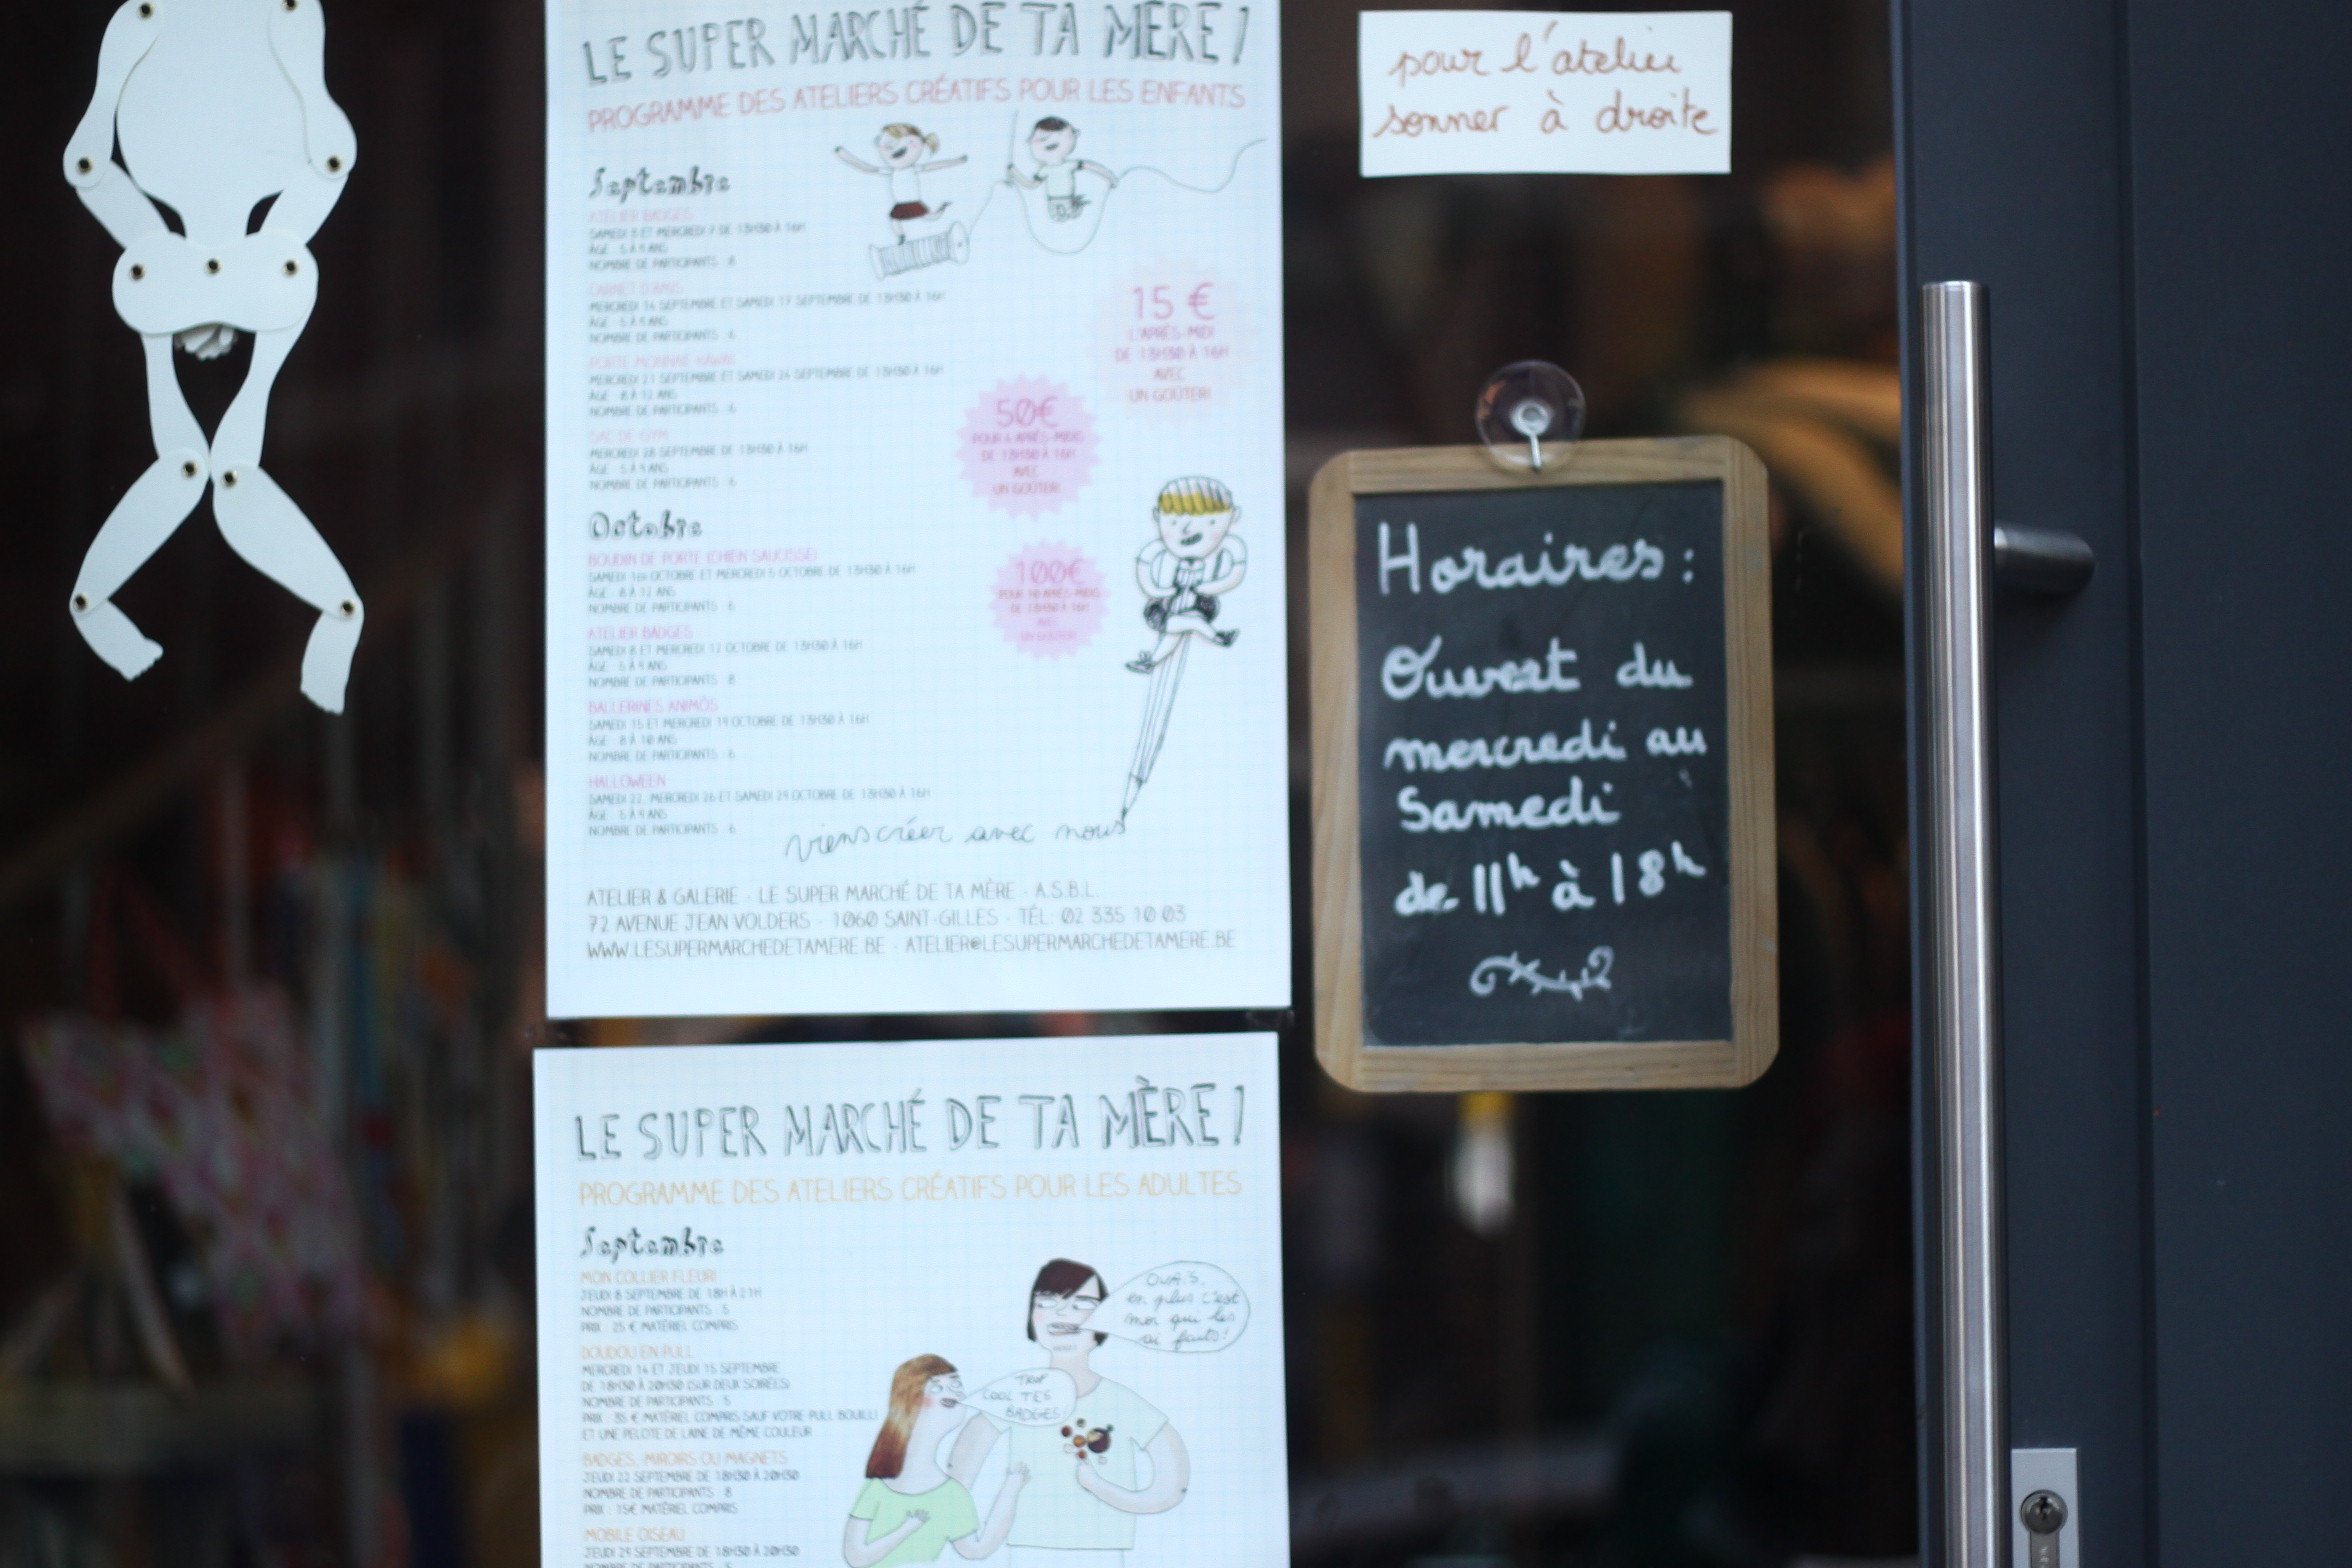 LE SUPER MARCHÉ DE TA MÈRE !
PROGRAMME DES ATELIERS CRÉATIFS POUR LES ENFANTS
Septembre
ATELIER BADGES
SAMEDI 3 ET MERCREDI 7 DE 13H30 À 16H
ÂGE : 5 À 9 ANS
NOMBRE DE PARTICIPANTS : 8
CARNET D'AMIS
MERCREDI 14 SEPTEMBRE ET SAMEDI 17 SEPTEMBRE DE 13H30 À 16H
ÂGE : 5 À 9 ANS
NOMBRE DE PARTICIPANTS : 6
PORTE MONNAIE
MERCREDI 21 SEPTEMBRE ET SAMEDI 24 SEPTEMBRE DE 13H30 À 16H
ÂGE : 8 À 12 ANS
NOMBRE DE PARTICIPANTS : 6
SAC DE GYM
MERCREDI 28 SEPTEMBRE DE 13H30 À 16H
ÂGE : 5 À 9 ANS
NOMBRE DE PARTICIPANTS : 6
Octobre
BOUDIN DE PORTE (CHIEN SAUCISSE)
SAMEDI 1er OCTOBRE ET MERCREDI 5 OCTOBRE DE 13H30 À 16H
ÂGE : 8 À 12 ANS
NOMBRE DE PARTICIPANTS : 6
ATELIER BADGES
SAMEDI 8 ET MERCREDI 12 OCTOBRE DE 13H30 À 16H
ÂGE : 5 À 9 ANS
NOMBRE DE PARTICIPANTS : 8
BALLERINES ANIMÔS
SAMEDI 15 ET MERCREDI 19 OCTOBRE DE 13H30 À 16H
ÂGE : 8 À 10 ANS
NOMBRE DE PARTICIPANTS : 6
HALLOWEEN
SAMEDI 22, MERCREDI 26 ET SAMEDI 29 OCTOBRE DE 13H30 À 16H
ÂGE : 5 À 9 ANS
NOMBRE DE PARTICIPANTS : 6
15 €
L'APRÈS-MIDI
DE 13H30 À 16H
AVEC
UN GOÛTER!
50€
POUR 4 APRÈS-MIDIS
DE 13H30 À 16H
AVEC
UN GOÛTER!
100€
POUR 10 APRÈS-MIDIS
DE 13H30 À 16H
AVEC
UN GOÛTER!
viens créer avec nous
ATELIER & GALERIE - LE SUPER MARCHÉ DE TA MÈRE - A.S.B.L.
72 AVENUE JEAN VOLDERS - 1060 SAINT-GILLES - TÉL: 02 335 10 03
WWW.LESUPERMARCHEDETAMERE.BE - ATELIER@LESUPERMARCHEDETAMERE.BE
pour l'atelier
sonner à droite
Horaires :
Ouvert du
mercredi au
Samedi
de 11h à 18h
LE SUPER MARCHÉ DE TA MÈRE !
PROGRAMME DES ATELIERS CRÉATIFS POUR LES ADULTES
Septembre
MON COLLIER FLEURI
JEUDI 8 SEPTEMBRE DE 18H À 21H
NOMBRE DE PARTICIPANTS : 5
PRIX : 25 € MATÉRIEL COMPRIS
DOUDOU EN PULL
MERCREDI 14 ET JEUDI 15 SEPTEMBRE
DE 18H30 À 20H30 (SUR DEUX SOIRÉES)
NOMBRE DE PARTICIPANTS : 5
PRIX : 35 € MATÉRIEL COMPRIS SAUF VOTRE PULL BOUILLI
ET UNE PELOTE DE LAINE DE MÊME COULEUR
BADGES, MIROIRS OU MAGNETS
JEUDI 22 SEPTEMBRE DE 18H30 À 20H30
NOMBRE DE PARTICIPANTS : 8
PRIX : 15€ MATÉRIEL COMPRIS
MOBILE OISEAU
JEUDI 29 SEPTEMBRE DE 18H30 À 20H30
NOMBRE DE PARTICIPANTS : 5
OUAIS,
en plus c'est
moi qui les
ai faits!
TROP
COOL TES
BADGES!